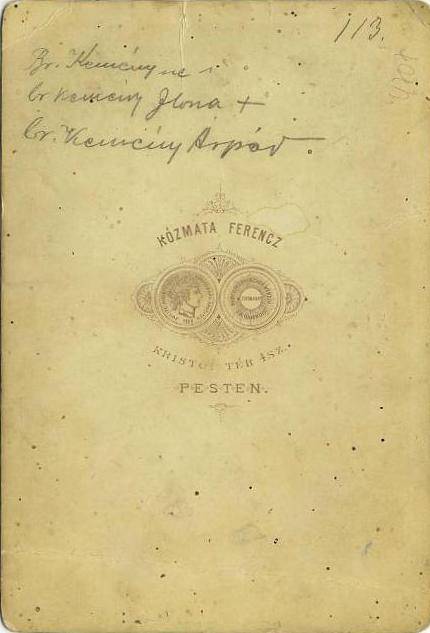 113.
Br. Kemény né
br kemény Ilona +
br. Kemény Árpád.
KOZMATA FERENCZ
KRISTOF TÉR 4SZ.
PESTEN.